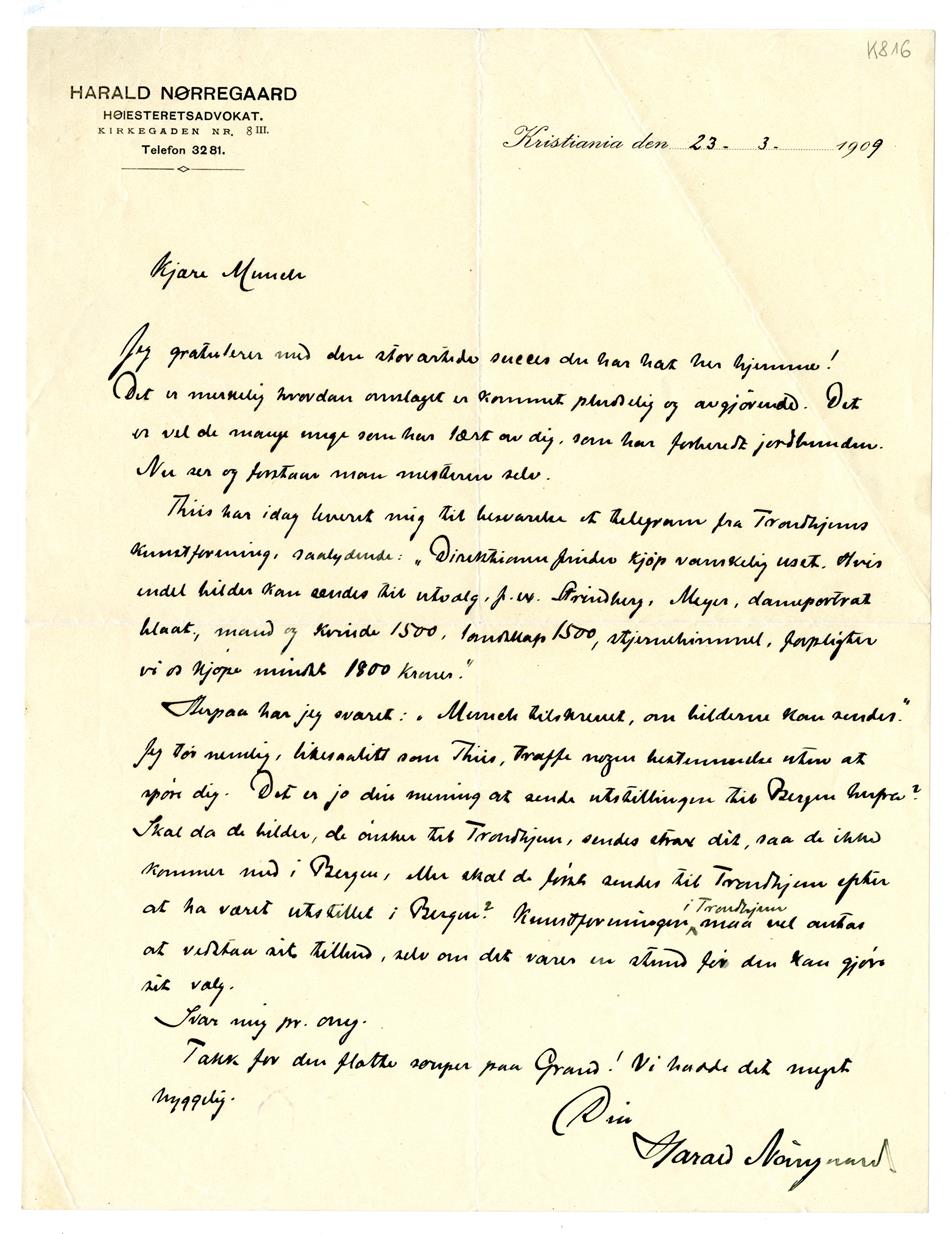 K816
HARALD NØRREGAARD
HØIESTERETSADVOKAT.
KIRKEGADEN NR. 8 III.
Telefon 3281.
Kristiania den 23 - 3. 1909
Kjære Munch
Jeg gratulerer med den storartede succes du har hat her hjemme!
Det er merkelig hvordan omslaget er kommet pludselig og avgjörende. Det
er vel de mange unge som har lært av dig, som har forberedt jordbunden.
Nu ser og forstaar man mesteren selv.
Thiis har idag leveret mig til besvarelse et telegram fra Trondhjems
kunstforening, saalydende: „Direktionen finder kjöp vanskelig uset. Hvis
endel bilder kan sendes til utvalg, f. ex. Strindberg, Meyer, dameportræt
blaat, mand og kvinde 1500, landskap 1500, stjernehimmel, forpligter
vi os kjöpe mindst 1800 kroner."
Herpaa har jeg svaret: „Munch tilskrevet, om bilderne kan sendes."
Jeg tör nemlig, likesaalitt som Thiis, træffe nogen bestemmelse uten at
spöre dig. Det er jo din mening at sende utstillingen til Bergen herfra?
Skal da de bilder, de önsker til Trondhjem, sendes strax dit, saa de ikke
kommer med i Bergen, eller skal de först sendes til Trondhjem efter
at ha været utstillet i Bergen? Kunstforeningen i Trondhjem maa vel antas
at vedstaa sit tilbud, selv om det varer en stund för den kan gjöre
sit valg.
Svar mig pr. omg.
Takk for den flotte souper paa Grand! Vi hadde det meget
hyggelig.
Din
Harald Nörregaard